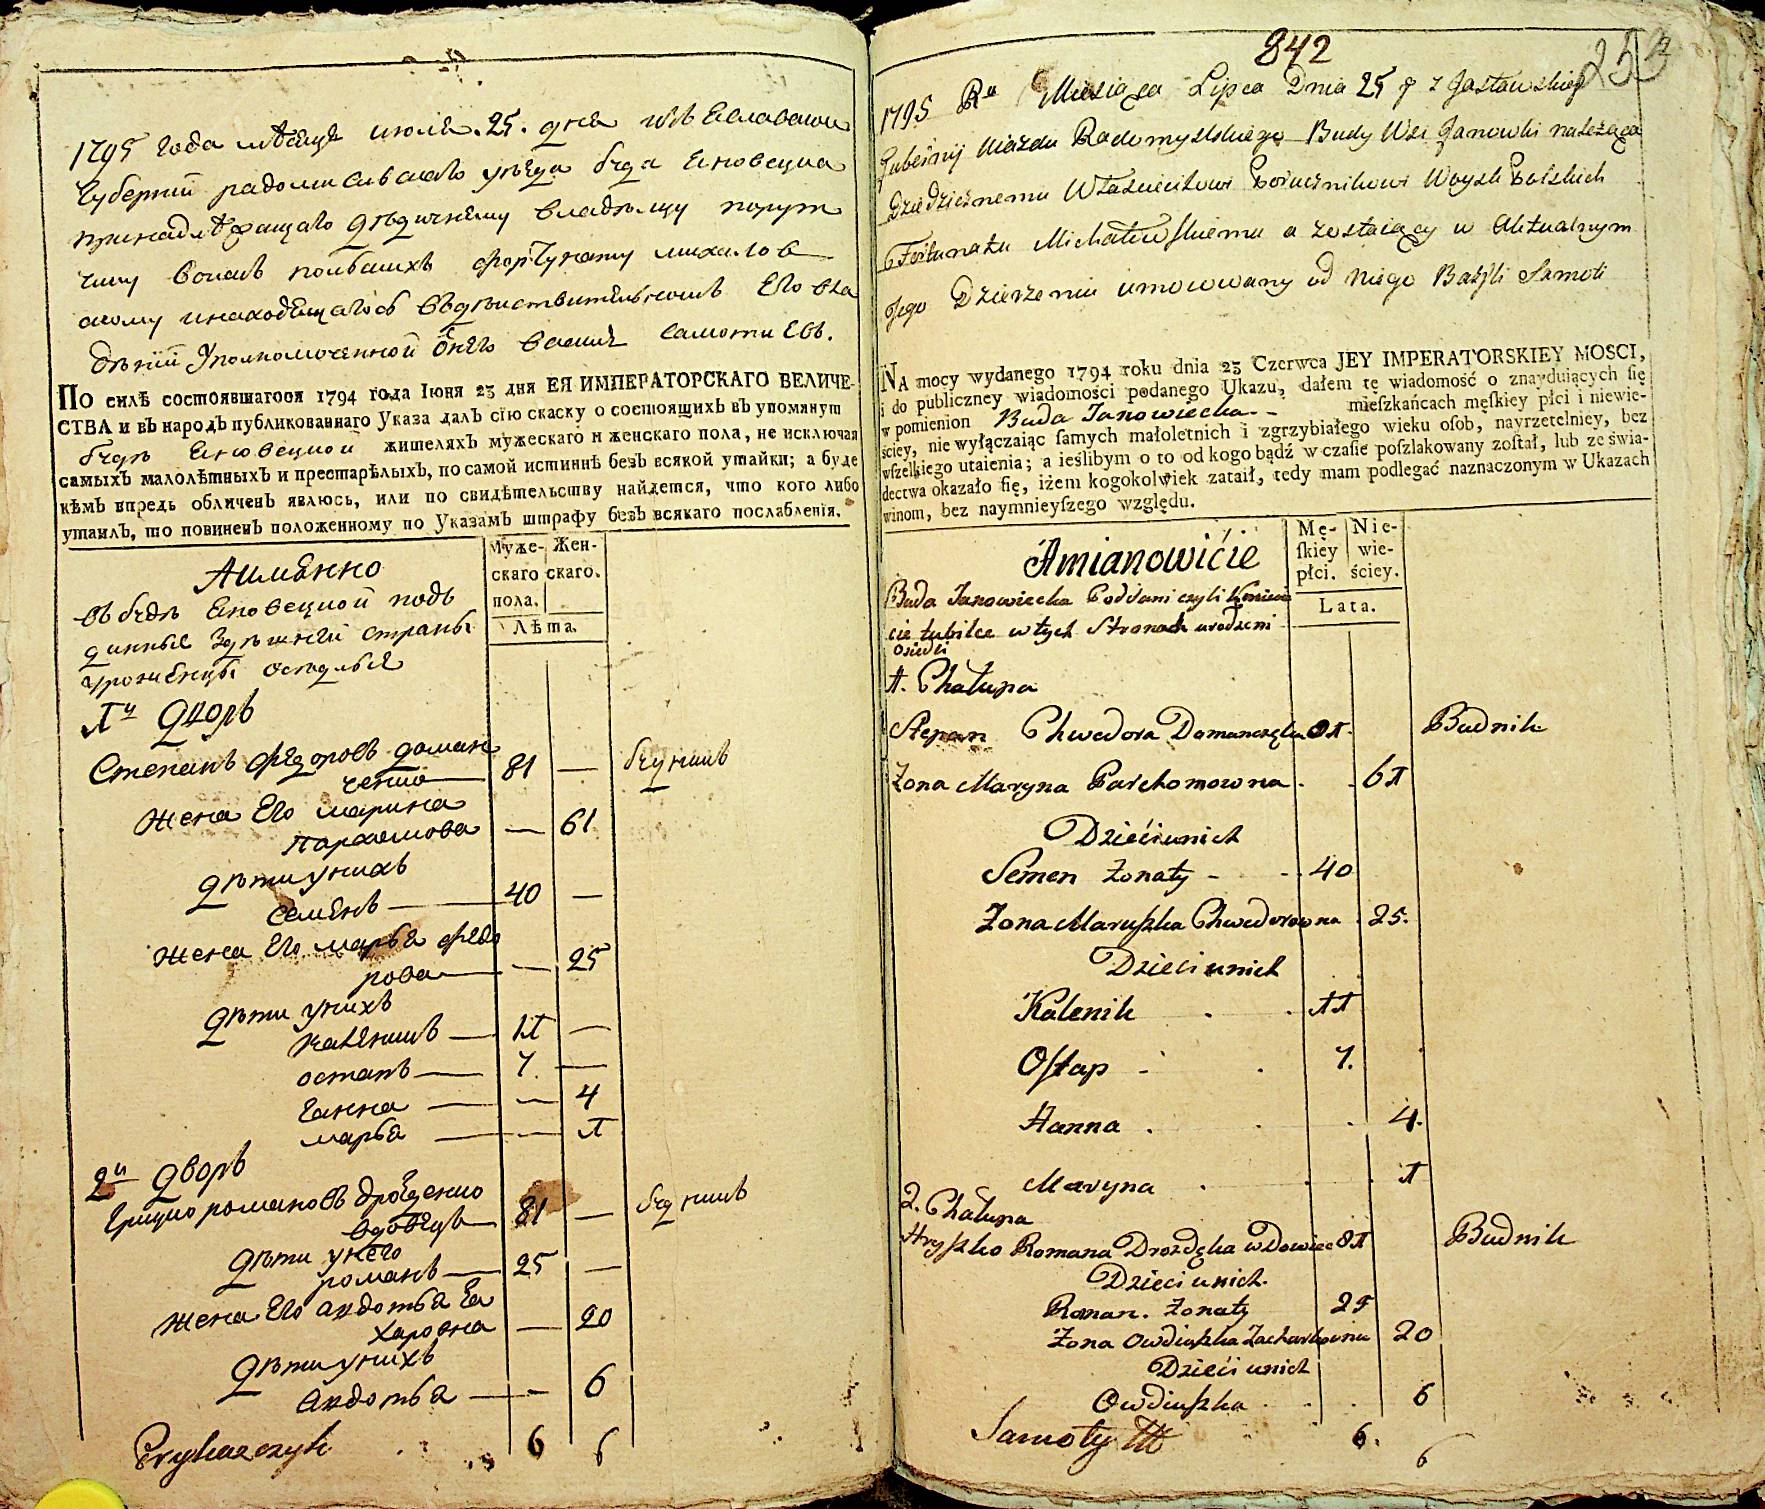 1795 года месеца июля 25. дня Изъ Еславской
Губерний радомисльского уезда буда Еновецка
принадлежащаго дедичнему владелцу порут
чику войскъ полскихъ Фортунату михалов
скому инаходящагося вдействительномъ Его вла
дений Уполномоченной Отнего василь Самотиевъ.
ПО силѣ состоявшагося 1794 года Іюня 23 дня ЕЯ ИМПЕРАТОРСКАГО ВЕЛИЧЕ-
СТВА и въ народъ публикованнаго Указа далъ сїю скаску о состоящихъ въ упомянут
будѣ Еновецкой жителяхъ мужескаго и женскаго пола, не исключая
самыхъ малолѣтныхъ и престарѣлыхъ, по самой истиннѣ безъ всякой утайки; а буде
кѣмъ впредь обличенъ явлюсь, или по свидѣтельству найдется, что кого либо
утаилъ, то повиненъ положенному по Указамъ штрафу безъ всякаго послабленїя.
Аимянно
Муже- Жен-
скаго скаго.
пола.
Лѣта.
въ будѣ Еновецкой подъ
данные Здѣшней страны
уроженцы оседлые
1й дворъ
Степанъ Федоровъ доман
ченко 81 — будникъ
жена Его марина
пархомова — 61
дѣти унихъ
семенъ — 40 —
жена Его марья федо
рова — — 25
дѣти унихъ
каленикъ — 11 —
остапъ — 7. —
Ганна — — 4
марья — — 1
2й дворъ
Грицко романовъ дрозденко
вдовецъ — 81 — будникъ
дѣти унего
романъ — 25 —
жена Его авдотья За
харовна — 20
дѣти унихъ
авдотья — — 6
Prykazczyk 6 6
842
253
1795 Ru Miesiąca Lipca Dnia 25 z Jzasławskiey
Gubernij Uiazdu Radomyslskiego Budy Wsi Janowki należącą
Dziedzicznemu Włascicielowi Porucznikowi Woysk Polskich
Fortunatu Michałowskiemu a zostaiący w Aktualnym
Jego Dzierzeniu umocowany od Niego Bazyli Samoti
NA mocy wydanego 1794 roku dnia 23 Czerwca JEY IMPERATORSKIEY MOSCI,
i do publiczney wiadomości podanego Ukazu, dałem tę wiadomość o znayduiących ſię
w pomienion Buda Janowiecka - mieſzkańcach męſkiey płci i niewie-
ściey, nie wyłączaiąc ſamych małoletnich i zgrzybiałego wieku oſob, nayrzetelniey, bez
wſzelkiego utaienia; a ieślibym o to od kogo bądź w czaſie poſzlakowany zoſtał, lub ze świa-
dectwa okazało ſię, iżem kogokolwiek zataił, tedy mam podlegać naznaczonym w Ukazach
winom, bez naymnieyſzego względu.
Amianowićie
Mę- Nie-
ſkiey wie-
płci. ściey.
Lata.
Buda Janowiecka Poddani czyli
cie lubilce w tych Stronach urodzeni
osiedli
1. Chałupa
Stepan Chwedora Domanczęka 81. Budnik
Żona Maryna Parchomowna . . 61
Dzieci unich
Semen żonaty - 40
Żona Maruszka Chwedorowna . 25.
Dzieci unich
Kalenik . . 11
Oſtap - . 7.
Hanna . . . 4.
Maryna . . . 1
2. Chałupa
Hryszko Romana Drozdęka wdowiec 81 Budnik
Dzieci unich.
Roman. żonaty 25
Żona Owdiuszka Zacharkowna 20
Dzieći unich
Owdiuszka . . . 6
Samoty 6. 6